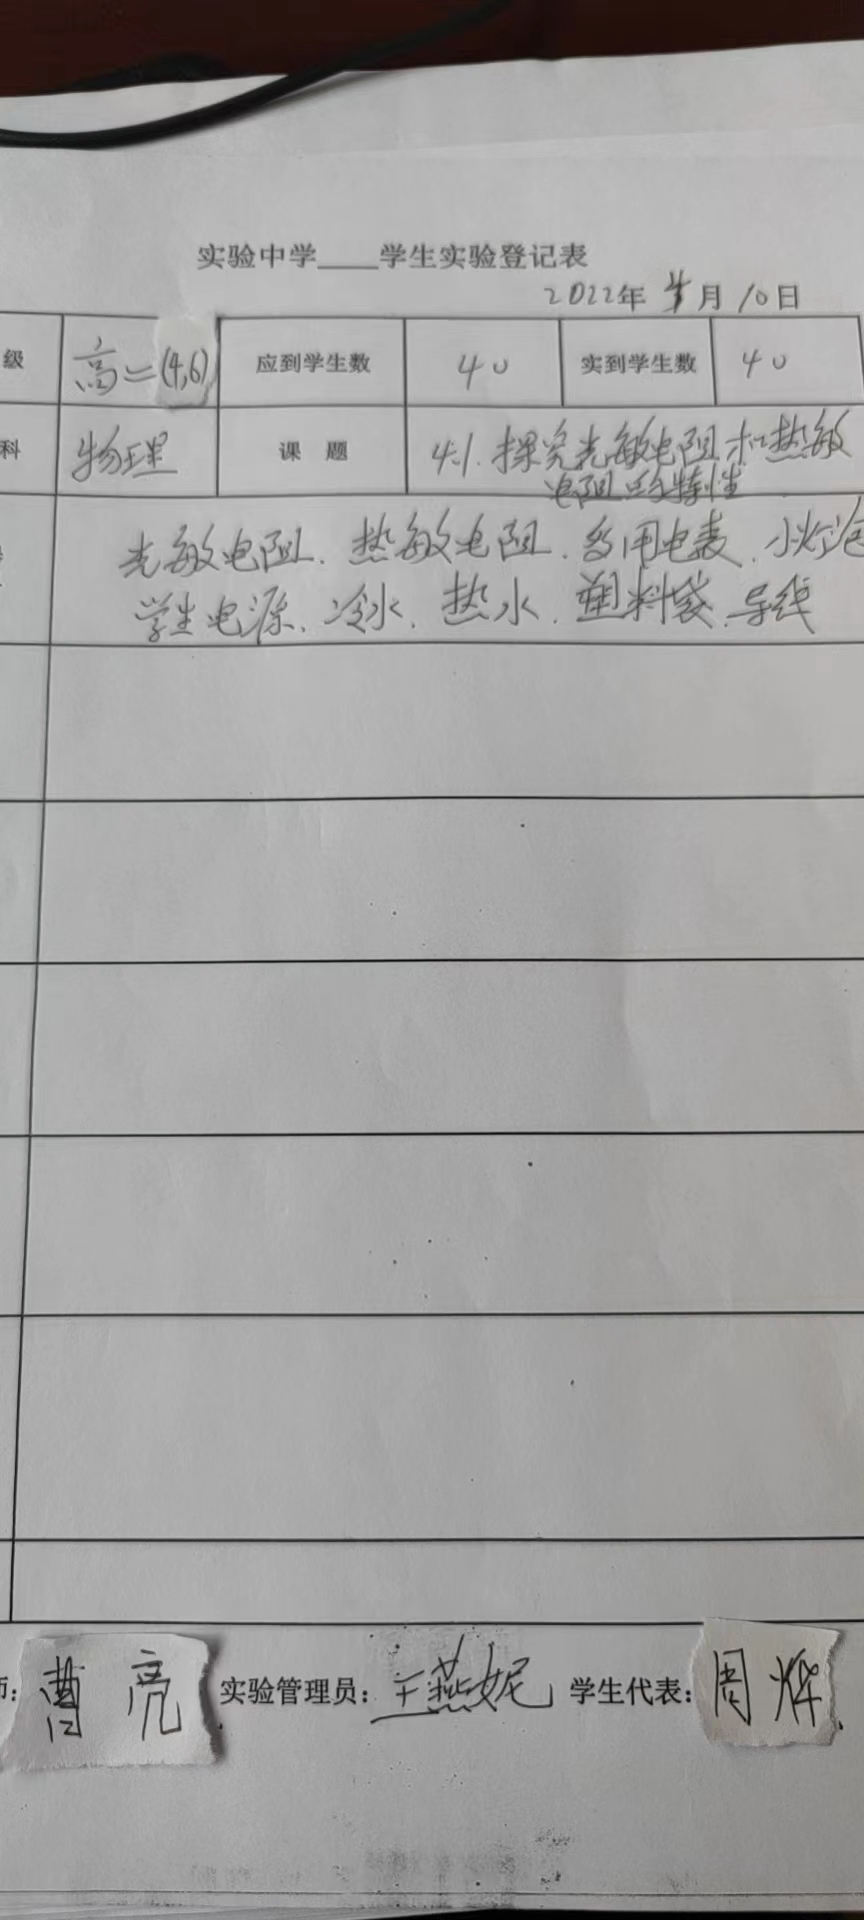 实验中学____学生实验登记表
2022年 4月 10日
级 高二(4,6) 应到学生数 40 实到学生数 40
科 物理 课 题 4.1.探究光敏电阻和热敏
电阻的特性
光敏电阻、热敏电阻、多用电表、小灯泡
学生电源、冷水、热水、塑料袋、导线
师: 曹亮 实验管理员: 王燕妮 学生代表: 周烨